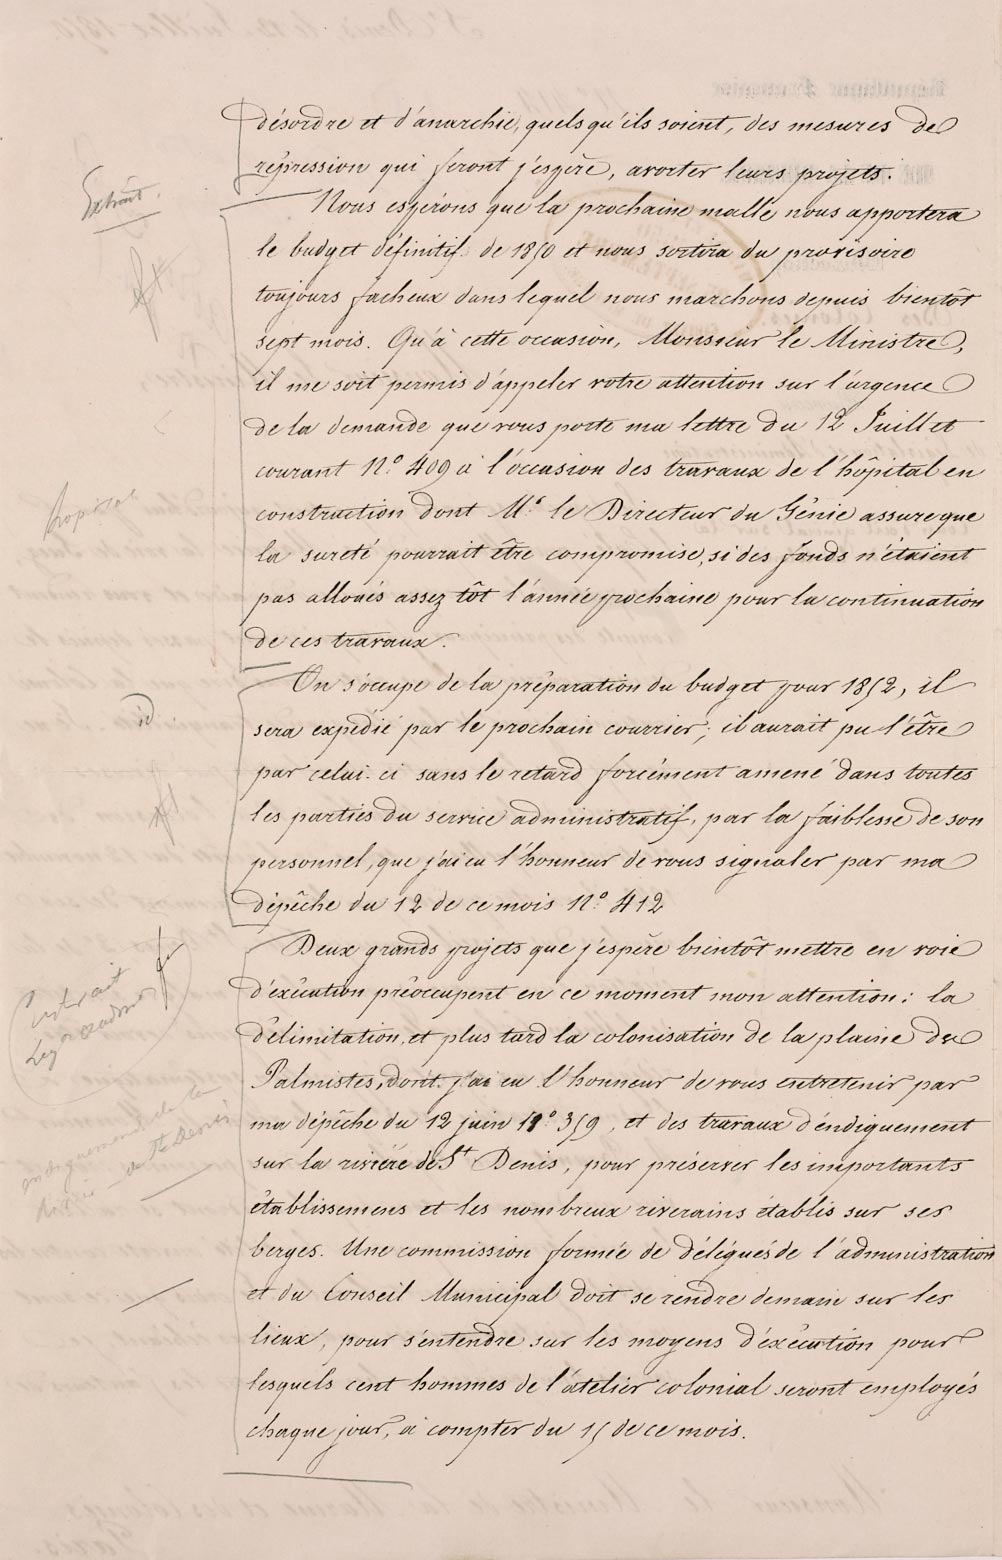 désordre et d'anarchie, quels qu'ils soient, des mesures de
répression qui feront j'espère, avorter leurs projets.
Extrait.
Nous espérons que la prochaine malle nous apportera
le budget définitif de 1850 et nous sortira du provisoire
toujours facheux dans lequel nous marchons depuis bientôt
sept mois. Qu'à cette occasion, Monsieur le Ministre,
il me soit permis d'appeler votre attention sur l'urgence
de la demande que vous porte ma lettre du 12 Juillet
courant N.o 409 à l'occasion des travaux de l'hôpital en
hopital
construction dont M.r le Directeur du Génie assure que
la sureté pourrait être compromise, si des fonds n'étaient
pas alloués assez tôt l'année prochaine pour la continuation
de ces travaux.
On s'occupe de la préparation du budget pour 1852, il
id.
sera expédié par le prochain courrier; il aurait pu l'être
par celui-ci sans le retard forcément amené dans toutes
les parties du service administratif, par la faiblesse de son
personnel, que j'ai eu l'honneur de vous signaler par ma
dépêche du 12 de ce mois N.o 412
Deux grands projets que j'espère bientôt mettre en voie
Extrait
d'exécution préoccupent en ce moment mon attention: la
délimitation, et plus tard la colonisation de la plaine des
Palmistes, dont j'ai eu l'honneur de vous entretenir par
ma dépêche du 12 juin N.o 359, et des travaux d'endiguement
endiguement de la
rivière de St Denis
sur la rivière de St Denis, pour préserver les importants
établissemens et les nombreux riverains établis sur ses
berges. Une commission formée de délégués de l'administration
et du Conseil Municipal doit se rendre demain sur les
lieux, pour s'entendre sur les moyens d'exécution pour
lesquels cent hommes de l'atelier colonial seront employés
chaque jour, à compter du 15 de ce mois.